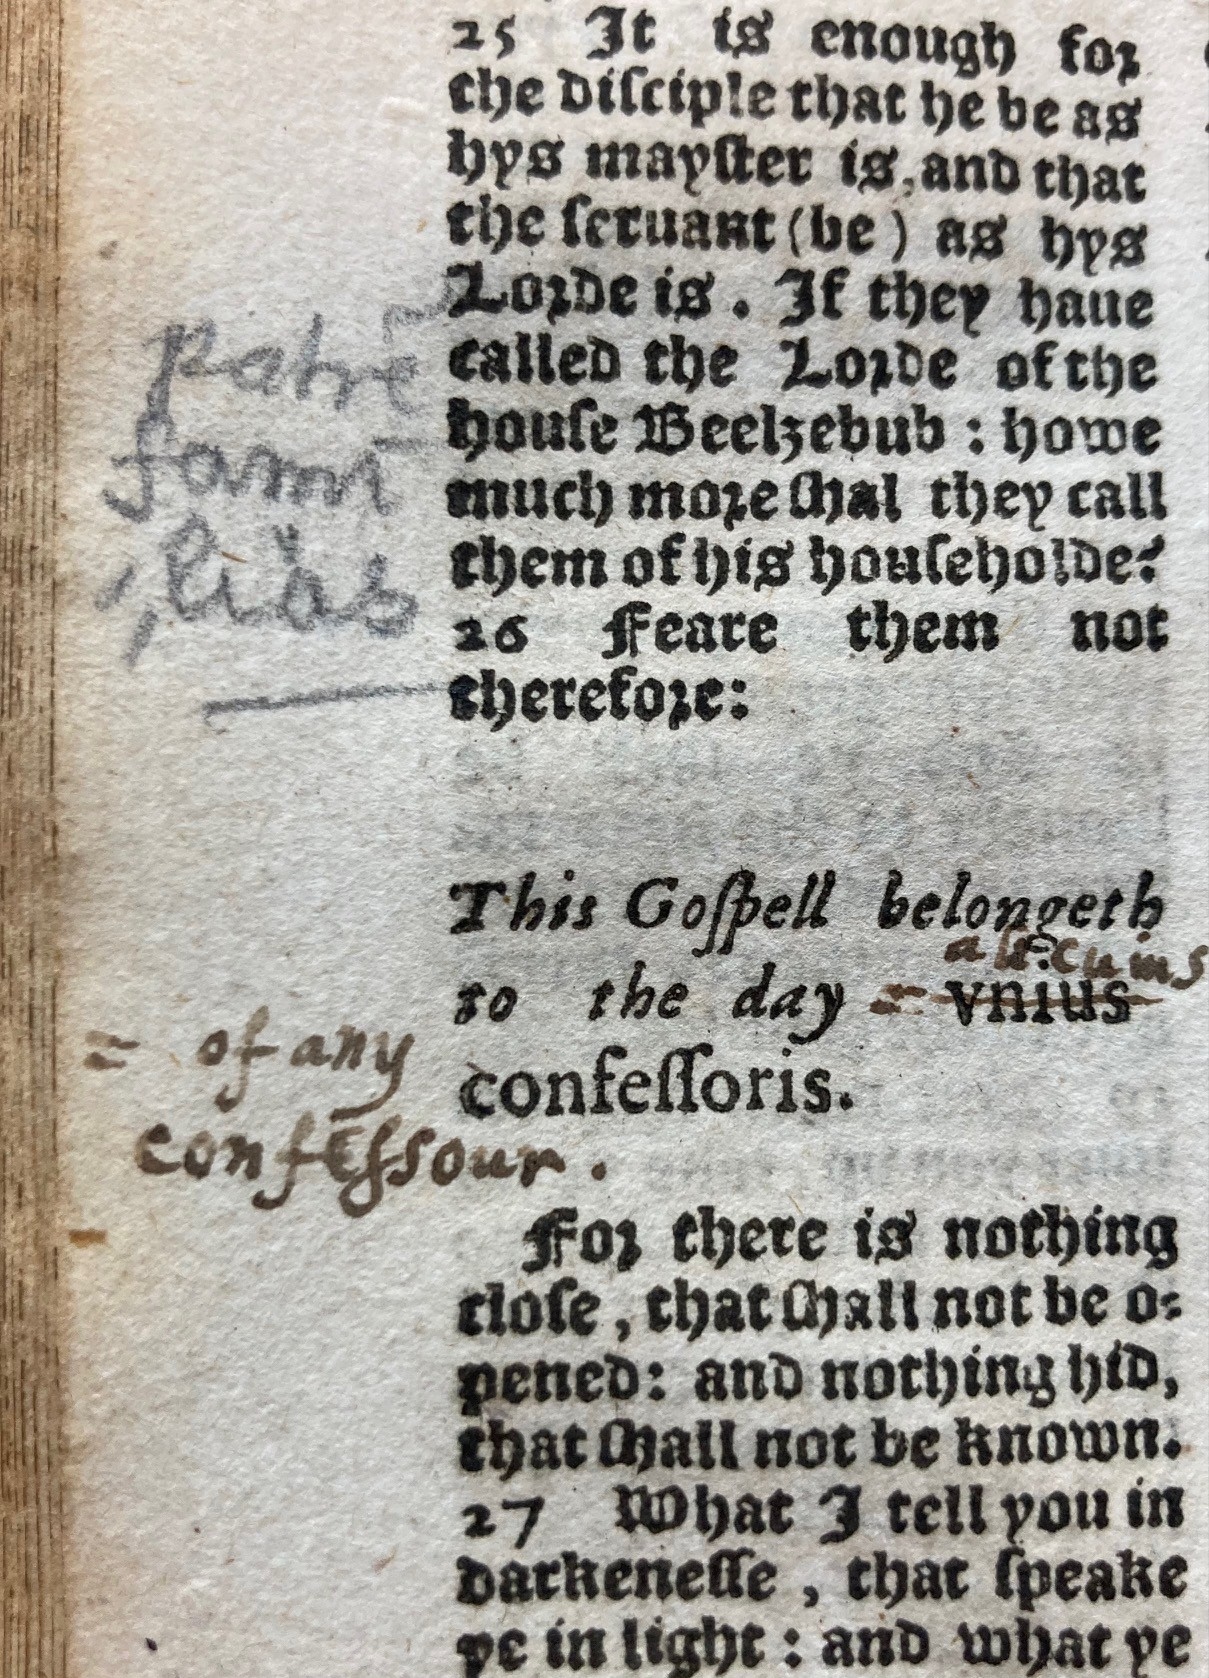 25 It is enough for
the disciple that he be as
hys mayster is, and that
the seruant (be) as hys
Lorde is. If they haue
called the Lorde of the
house Beelzebub: howe
much more shal they call
them of his householde?
26 Feare them not
therefore:
patrē
fami
lias
This Gospell belongeth
to the day = vnius
alicuius
confessoris.
= of any
confessour.
For there is nothing
close, that shall not be o=
pened: and nothing hid,
that shall not be known.
27 What I tell you in
darkenesse, that speake
ye in light: and what ye